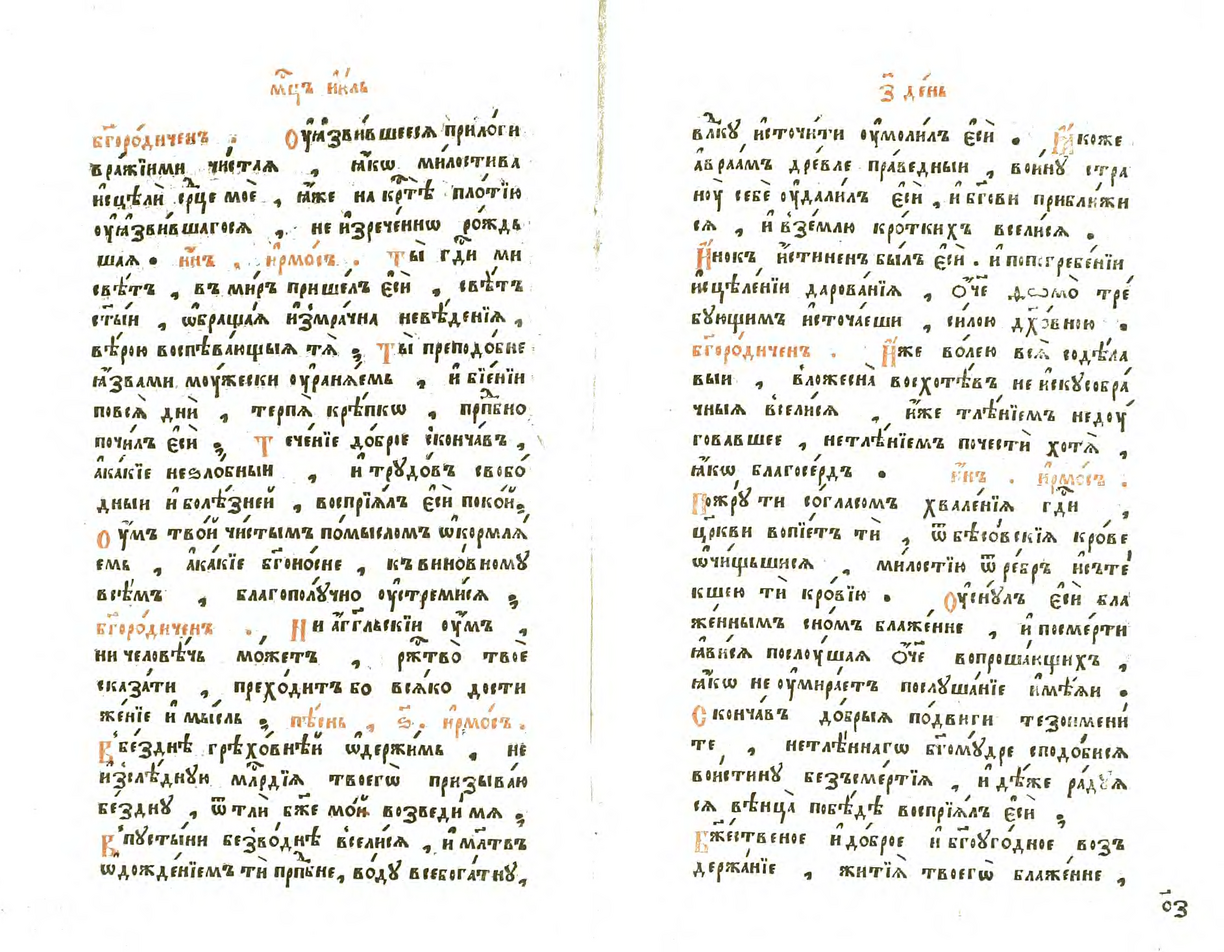 мц҃ъ і҆ю́ль
бг҃оро́диченъ . Оу҆ѧ҆́звившеесѧ прило́ги
вра́жїими чи́стаѧ , ꙗ҆́кѡ ми́лостива
и҆сцѣли̂ ср҃це мое̂ , ꙗ҆́же на крⷭ҇тѣ̂ пло́тїю
оу҆ѧ҆́звившагосѧ , не и҆зрече́ннѡ ро́ждь
шаѧ . нн҃ѣ . і҆рмо́съ . Ты̂ гдⷭ҇и ми
свѣ́тъ , въ ми́ръ прише́лъ є҆сѝ , свѣ́тъ
ст҃ы́и , ѡ҆браща́ѧ и҆змра́чна невѣ́денїѧ ,
вѣ́рою воспѣва́ющыѧ тѧ̀ ; Ты̂ преподо́бне
ꙗ҆́звами моу́жески оу҆ранѧ́емь , и҆ бїе́нїи
повсѧ̂ днѝ , терпѧ̀ крѣ́пкѡ , прпⷣбно
почи́лъ є҆сѝ ; Тече́нїе до́брое сконча́въ ,
а҆ка́кїе неѕло́бныи , и҆ трудо́въ свобо́
дныи и҆ болѣ́зней , воспрїѧ́лъ є҆сѝ поко́й ;
Оу҆́мъ тво́й чи́стымъ по́мысломъ ѡ҆кормлѧ́
емь , а҆ка́кїе бг҃оно́сне , къ вино́вному
всѣ́мъ , благополу́чно оу҆стреми́сѧ ;
бг҃оро́диченъ . Ни а҆́гг҃льскїи оу҆́мъ ,
ни человѣ́чь мо́жетъ , рж҃тво̀ твоѐ
сказа́ти , прехо́дитъ бо всѧ́ко дости
же́нїе и҆ мы́сль ; пѣ́снь , ѕ҃ . і҆рмо́съ .
В бе́зднѣ грѣхо́внѣй ѡ҆держи́мь , не
и҆зслѣ́дную млⷭ҇рдїѧ твоегѡ̀ призыва́ю
бе́здну , ѿ тлѝ бж҃е мо́й возведи́ мѧ ;
В пусты́ни безво́днѣ всели́сѧ , и҆ мл҃твъ
ѡ҆дожде́нїемъ ти прпⷣбне , во́ду всебога́тну ,
з҃ де́нь
влⷣку и҆сточи́ти оу҆моли́лъ є҆сѝ . Ꙗ҆́коже
а҆враа́мъ дре́вле пра́ведныи , во́ину стра
ноу́ себѐ оу҆дали́лъ є҆сѝ , и҆ бг҃ови прибли́жи
сѧ , и҆ взе́млю кро́ткихъ всели́сѧ .
И҆́нокъ и҆́стиненъ бы́лъ є҆сѝ . и҆ попогребе́нїи
и҆сцѣле́нїи дарова́нїѧ , ѻ҆́ч҃е тре́
бующимъ и҆сточа́еши , си́лою дх҃о́вною .
бг҃оро́диченъ . И҆́же во́лею всѧ̀ содѣ́ла
выи , вложесна̀ восхотѣ́въ не и҆скусобра́
чныѧ всели́сѧ , и҆́же тлѣ́нїемъ недоу́
говавшее , нетлѣ́нїемъ почестѝ хотѧ̀ ,
ꙗ҆́кѡ благосе́рдъ . нн҃ѣ . і҆рмо́съ .
Пожру́ ти со́гласомъ хвале́нїѧ гдⷭ҇и ,
цр҃кви вопїе́тъ ти̂ , ѿ бѣсо́вскїѧ кро́ве
ѡ҆чи́щьшисѧ , ми́лостїю ѿ ре́бръ и҆сте́
кшею ти̂ кро́вїю . Оу҆сну́лъ є҆сѝ бла
же́ннымъ сно́мъ блаже́нне , и҆ посме́рти
ꙗ҆ви́сѧ послоу́шаѧ ѻ҆́ч҃е вопроша́ющихъ ,
ꙗ҆́кѡ не оу҆мира́етъ послуша́нїе и҆мѣ́ѧи .
Сконча́въ до́брыѧ по́двиги тезоимени́
те , нетлѣ́ннагѡ бг҃ому́дре сподо́бисѧ
вои́стину безъсме́ртїѧ , и҆ дѣ́же ра́дуѧ
сѧ вѣнца̀ побѣ́дѣ воспрїѧ́лъ є҆сѝ ;
Бж҃е́ственое и҆ до́брое и҆ бг҃оуго́дное возъ
держа́нїе , житїѧ̀ твоегѡ̀ блаже́нне ,
о҃з